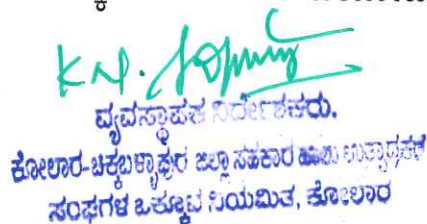 ವ್ಯವಸ್ಥಾಪಕ ನಿರ್ದೇಶಕರು.
ಕೋಲಾರ-ಚಿಕ್ಕಬಳ್ಳಾಪುರ ಜಿಲ್ಲಾ ಸಹಕಾರ ಹಾಲು ಉತ್ಪಾದಕರ
ಸಂಘಗಳ ಒಕ್ಕೂಟ ನಿಯಮಿತ, ಕೋಲಾರ